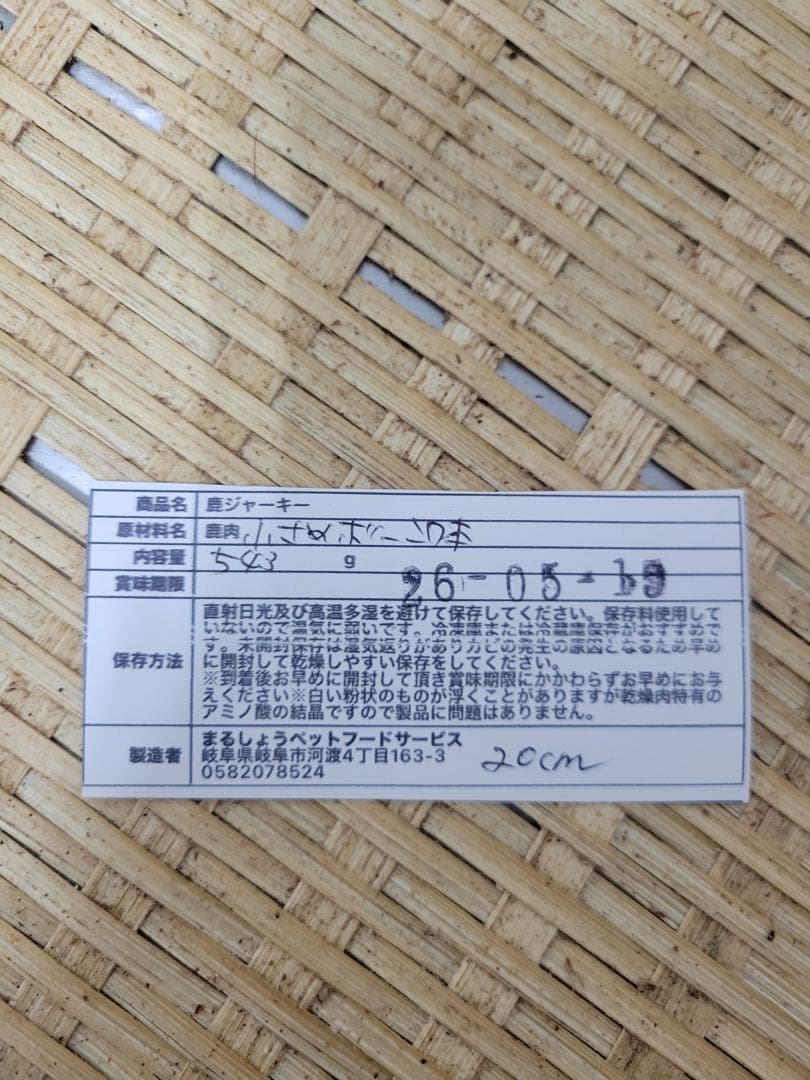 商品名 鹿ジャーキー
原材料名 鹿肉 小さめボーン
内容量 543 g
賞味期限 26-05-19
保存方法 直射日光及び高温多湿を避けて保存してください。保存料使用して
いないので温気に弱いです。冷凍庫または冷蔵庫保存がおすすめで
す。未開封保存は湿気返りがありカビの発生の原因となるため早め
に開封して乾燥しやすい保存をしてください。
※到着後お早めに開封して頂き賞味期限にかかわらずお早めにお与
えください※白い粉状のものが浮くことがありますが乾燥肉特有の
アミノ酸の結晶ですので製品に問題はありません。
製造者 まるしょうペットフードサービス
岐阜県岐阜市河渡4丁目163-3
0582078524
20cm